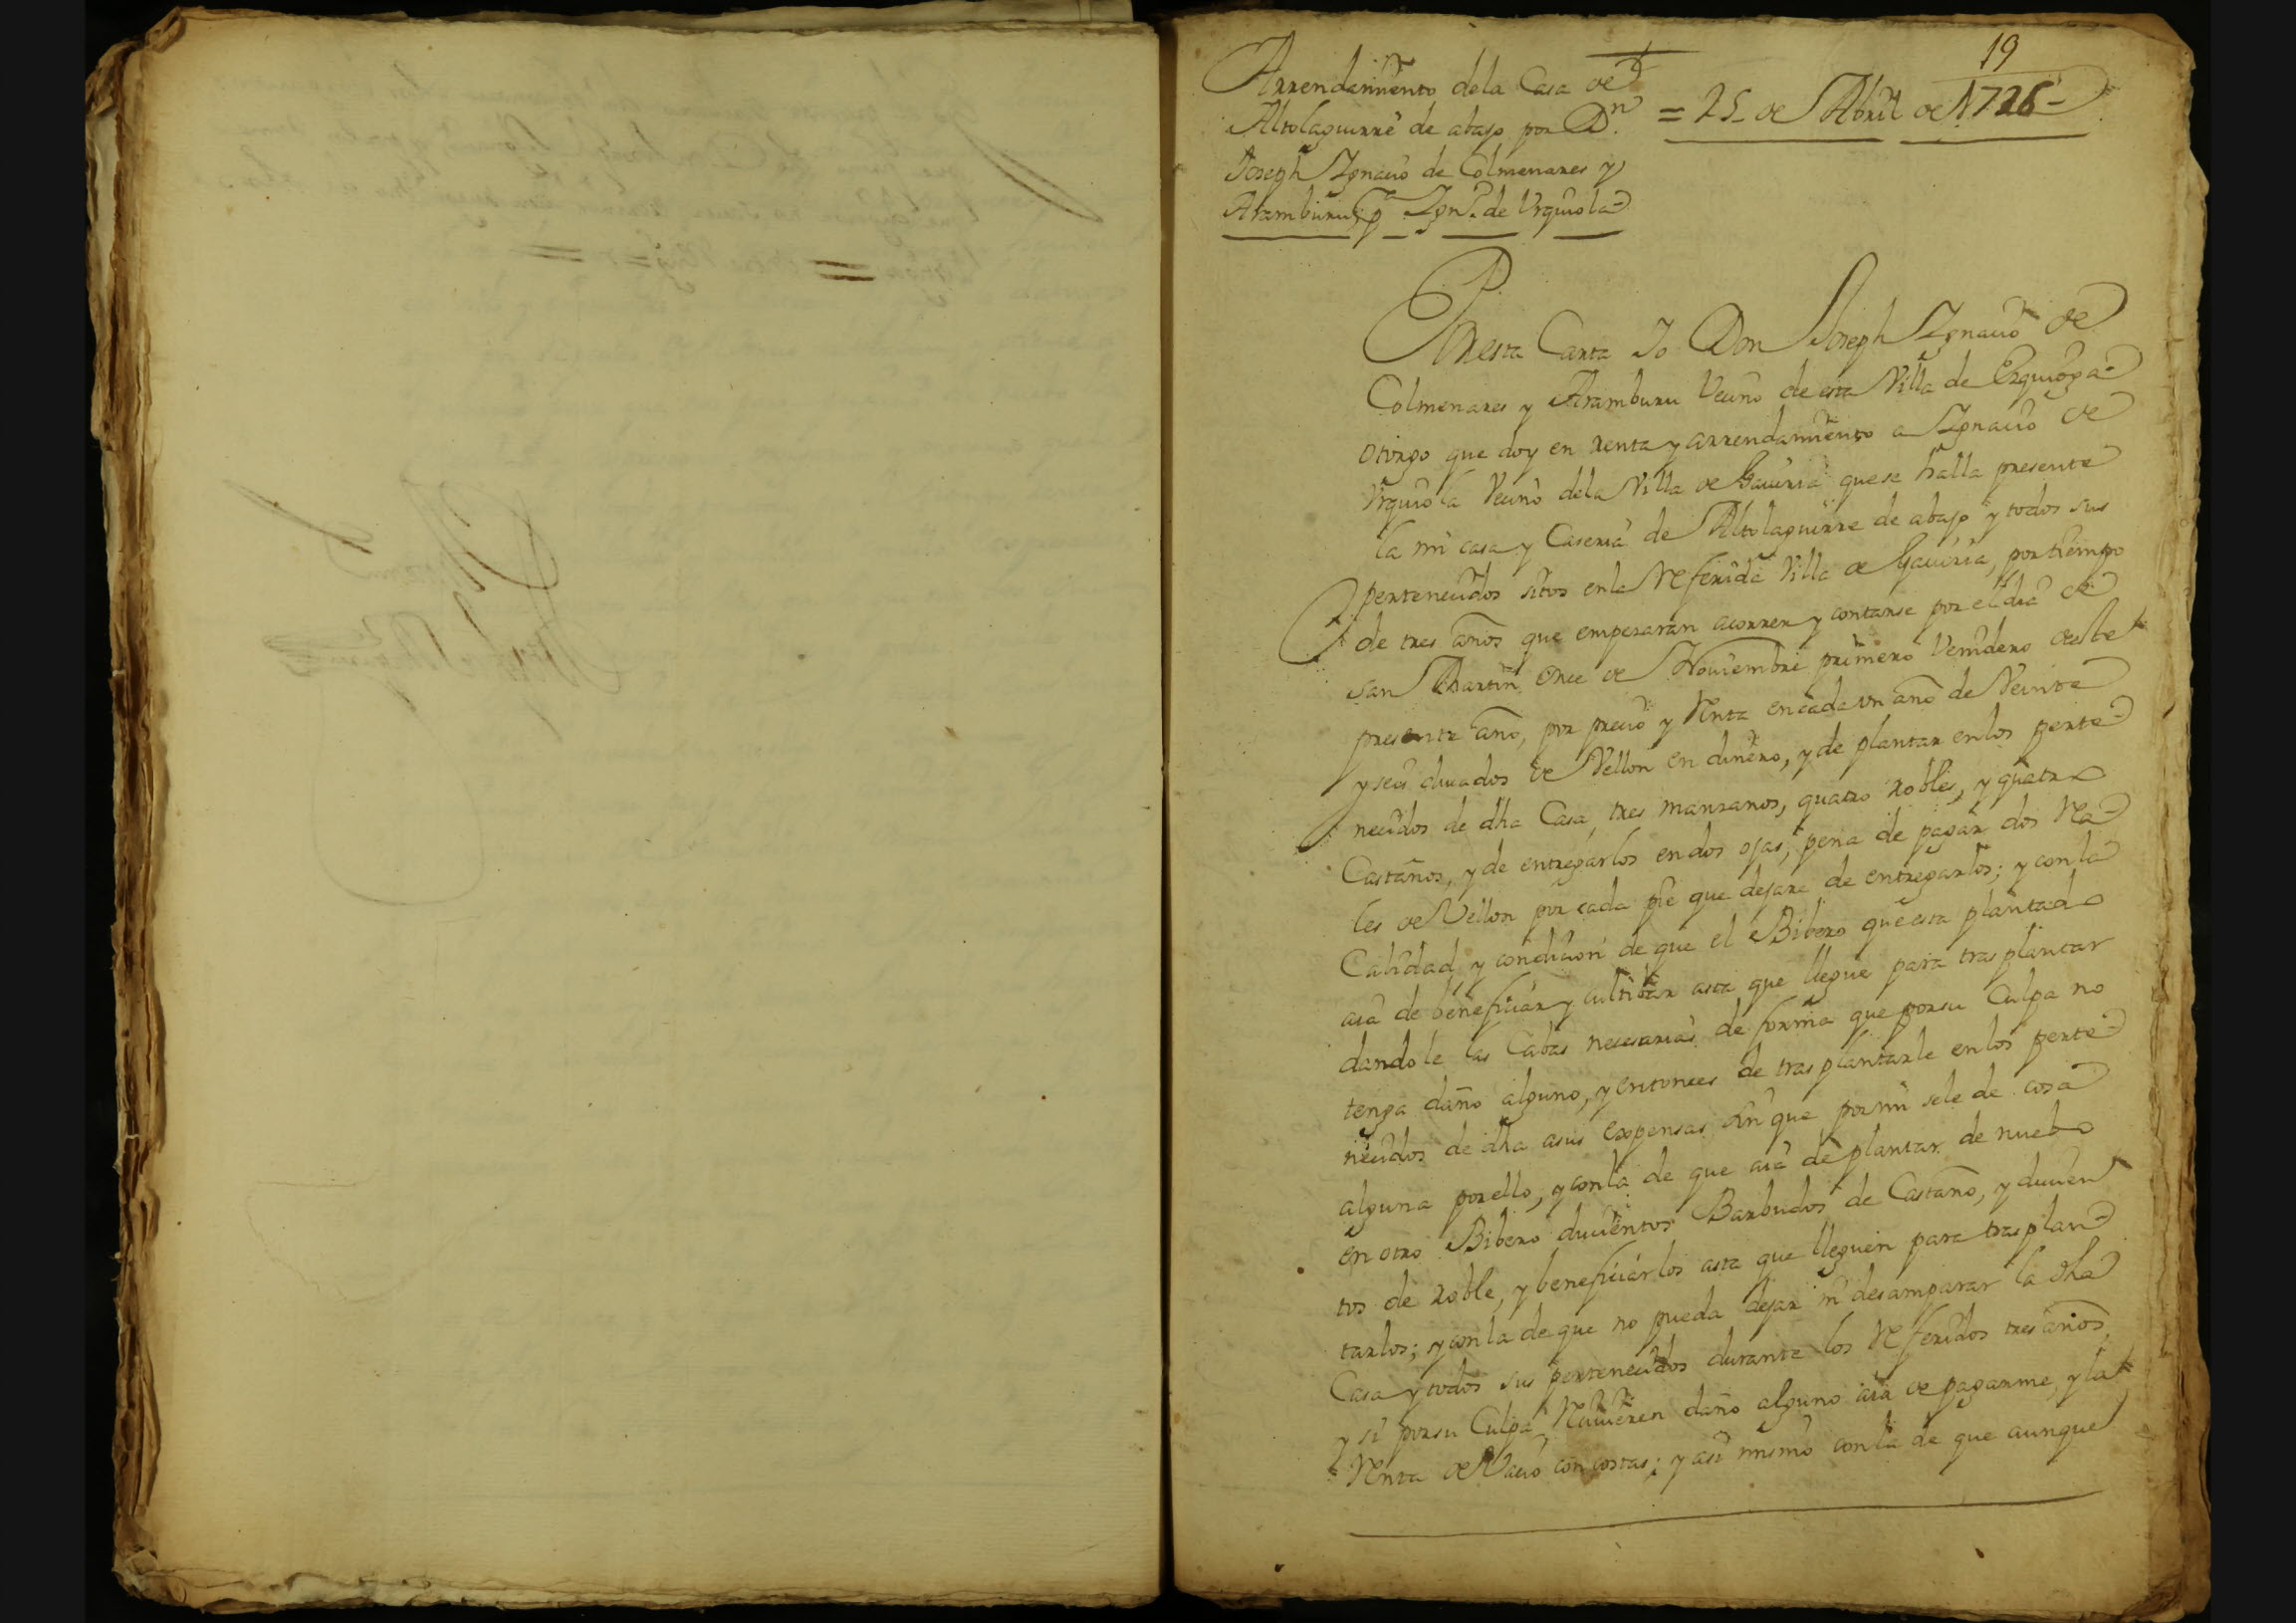 19
Arrendamiento dela Casa de
Altolaguirre de abajo por Dn.
Joseph Ygnacio de Colmenares y
Aramburu, pa Ygno. de Vrquiola
= 25 de Abril de 1726 =
Por esta Carta Yo Don Joseph Ygnacio de
Colmenares y Aramburu Vecino de esta Villa de Ezquioga
otorgo que doy en renta y arrendamiento a Ygnacio de
Vrquiola Vecino dela Villa de Gaviria que se halla presente
la mi casa y Caseria de Altolaguirre de abajo y todos sus
pertenecidos sitos enla Referida Villa de Gaviria, por tiempo
de tres años que empezaran acorrer y contarse por el dia de
san Martin Once de Noviembre primero Venidero deste
presente año, por precio y Renta encada vn año de Veinte
y seis ducados de Vellon en dinero, y de plantar enlos perte-
necidos de dha Casa tres manzanos, quatro robles, y quatro
Castaños, y de entregarlos endos ojas, pena de pagar dos Rea-
les de Vellon por cada pie que dejare de entregarlos; y con la
Calidad y condicion de que el Bibero que esta plantado
aia de beneficiar y cultibar asta que llegue para trasplantar
dandole las Cabas necesarias de forma que porsu Culpa no
tenga daño alguno, y entonces de trasplantarle enlos perte-
necidos de dha asus expensas sin que por mi sele de cosa
alguna por ello, y conla de que aia de plantar de nuebo
en otro Bibero ducientos Barbudos de Castaño, y ducien
tos de roble, y beneficiarlos asta que lleguen para trasplan-
tarlos; y conla de que no pueda dejar ni desamparar la dha
Casa y todos sus pertenecidos durante los Referidos tres años
y si porsu Culpa Reciuieren daño alguno aia de pagarme, y la
Renta de Vacio con costas; y asi mismo conla de que aunque